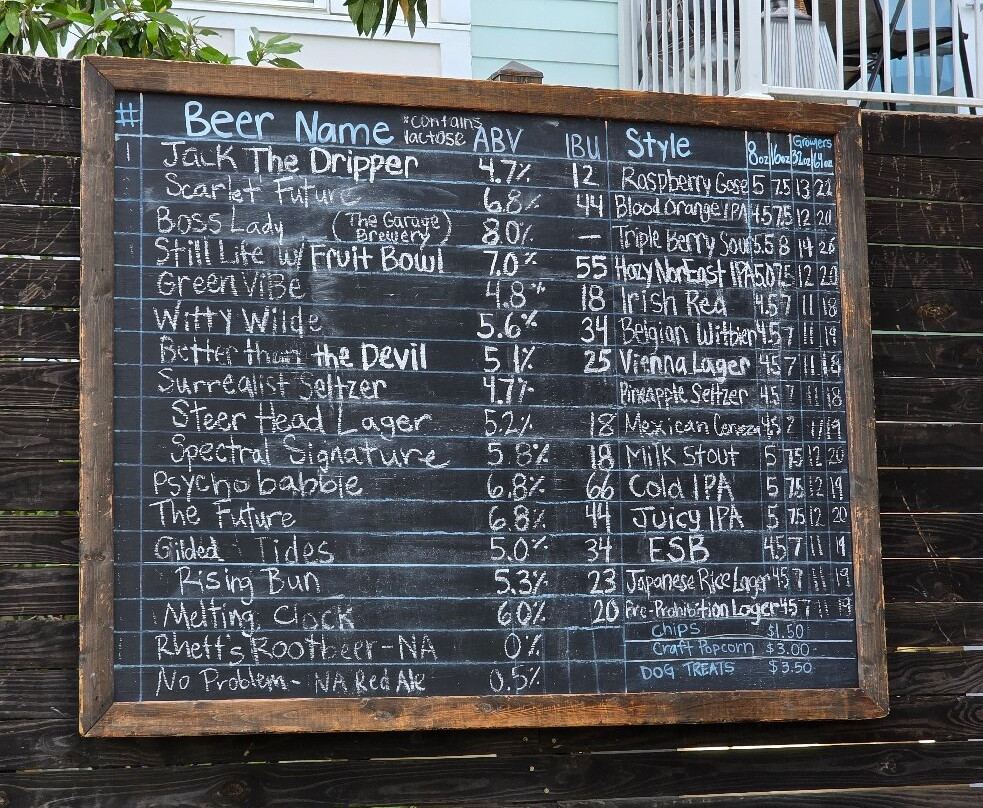 # Beer Name *contains lactose ABV IBU Style 8oz 16oz Growlers 32oz 64oz
1 Jack The Dripper 4.7% 12 Raspberry Gose 5 7.5 13 22
Scarlet Future 6.8% 44 Blood Orange IPA 4.5 7.5 12 20
Boss Lady (The Garage Brewery) 8.0% — Triple Berry Sour 5.5 8 14 26
Still Life w/ Fruit Bowl 7.0% 55 Hazy NorEast IPA 5.0 7.5 12 20
Green ViBe 4.8% 18 Irish Red 4.5 7 11 18
Witty Wilde 5.6% 34 Belgian Witbier 4.5 7 11 19
Better than the Devil 5.1% 25 Vienna Lager 4.5 7 11 18
Surrealist Seltzer 4.7% Pineapple Seltzer 4.5 7 11 18
Steer Head Lager 5.2% 18 Mexican Cerveza 4.5 7 11 19
Spectral Signature 5.8% 18 Milk Stout 5 7.5 12 20
Psychobabble 6.8% 66 Cold IPA 5 7.5 12 19
The Future 6.8% 44 Juicy IPA 5 7.5 12 20
Gilded Tides 5.0% 34 ESB 4.5 7 11 19
Rising Bun 5.3% 23 Japanese Rice Lager 4.5 7 11 19
Melting Clock 6.0% 20 Pre-Prohibition Lager 4.5 7 11 19
Chips $1.50
Rhett's Rootbeer - NA 0% Craft Popcorn $3.00
No Problem - NA Red Ale 0.5% DOG TREATS $3.50